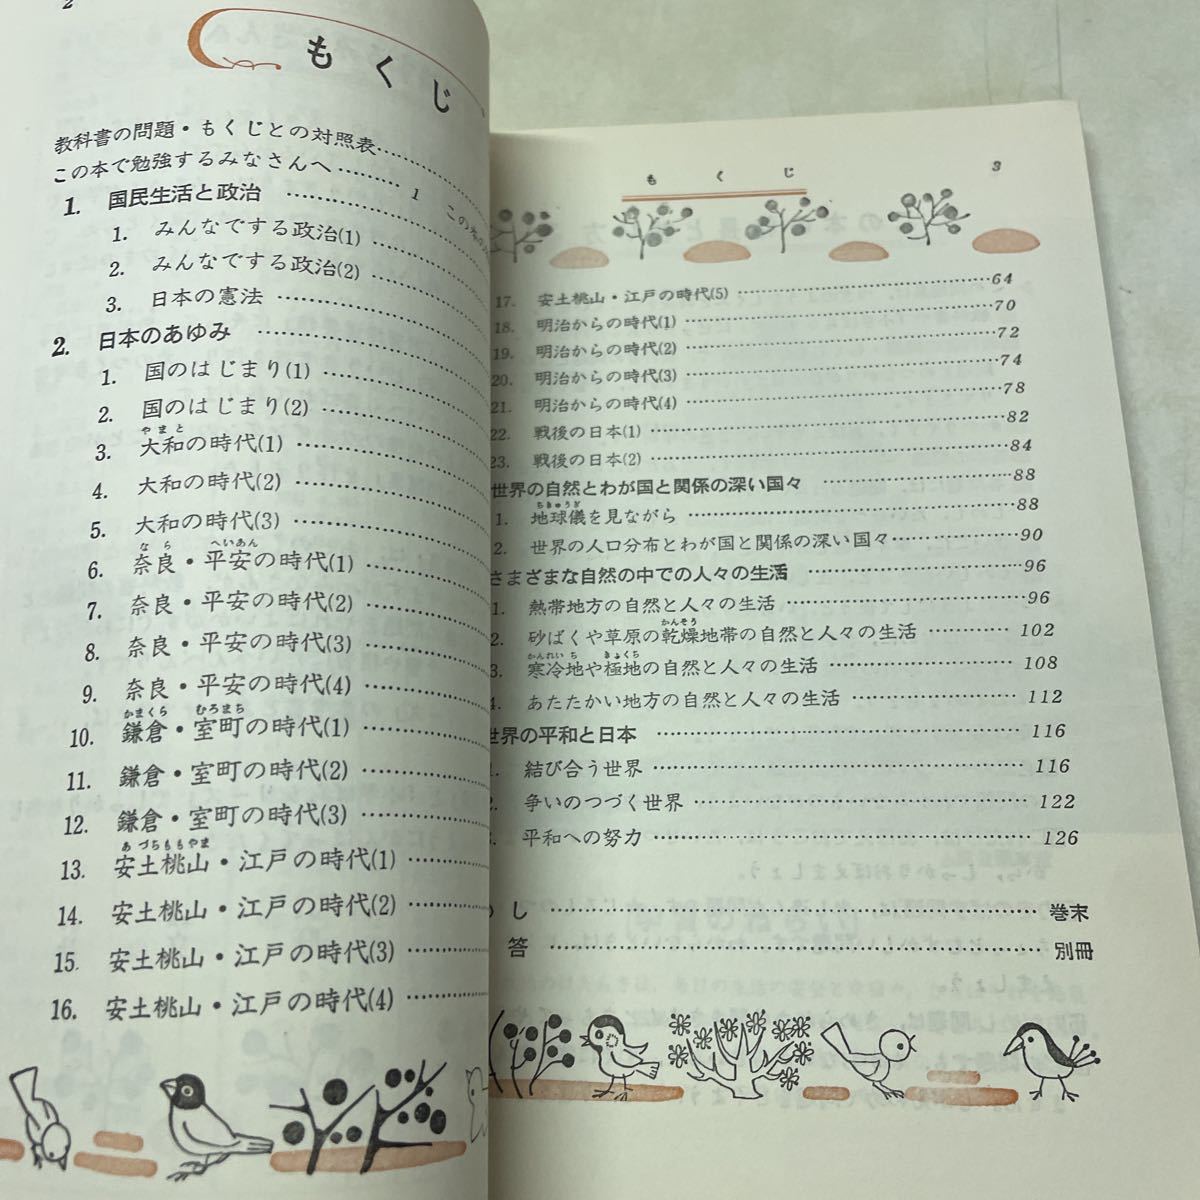 2
もくじ
教科書の問題・もくじとの対照表
この本で勉強するみなさんへ……… 1
1. 国民生活と政治
1. みんなでする政治(1)
2. みんなでする政治(2)
3. 日本の憲法
2. 日本のあゆみ
1. 国のはじまり(1)
2. 国のはじまり(2)
やまと
3. 大和の時代(1)
4. 大和の時代(2)
5. 大和の時代(3)
なら へいあん
6. 奈良・平安の時代(1)
7. 奈良・平安の時代(2)
8. 奈良・平安の時代(3)
9. 奈良・平安の時代(4)
かまくら むろまち
10. 鎌倉・室町の時代(1)
11. 鎌倉・室町の時代(2)
12. 鎌倉・室町の時代(3)
あづちももやま
13. 安土桃山・江戸の時代(1)
14. 安土桃山・江戸の時代(2)
15. 安土桃山・江戸の時代(3)
16. 安土桃山・江戸の時代(4)
もくじ 3
17. 安土桃山・江戸の時代(5) 64
18. 明治からの時代(1) 70
19. 明治からの時代(2) 72
20. 明治からの時代(3) 74
21. 明治からの時代(4) 78
22. 戦後の日本(1) 82
23. 戦後の日本(2) 84
世界の自然とわが国と関係の深い国々 88
ちきゅうぎ
1. 地球儀を見ながら 88
2. 世界の人口分布とわが国と関係の深い国々 90
さまざまな自然の中での人々の生活 96
1. 熱帯地方の自然と人々の生活 96
かんそう
2. 砂ばくや草原の乾燥地帯の自然と人々の生活 102
かんれいち きょくち
3. 寒冷地や極地の自然と人々の生活 108
4. あたたかい地方の自然と人々の生活 112
世界の平和と日本 116
1. 結び合う世界 116
2. 争いのつづく世界 122
3. 平和への努力 126
し 巻末
答 別冊